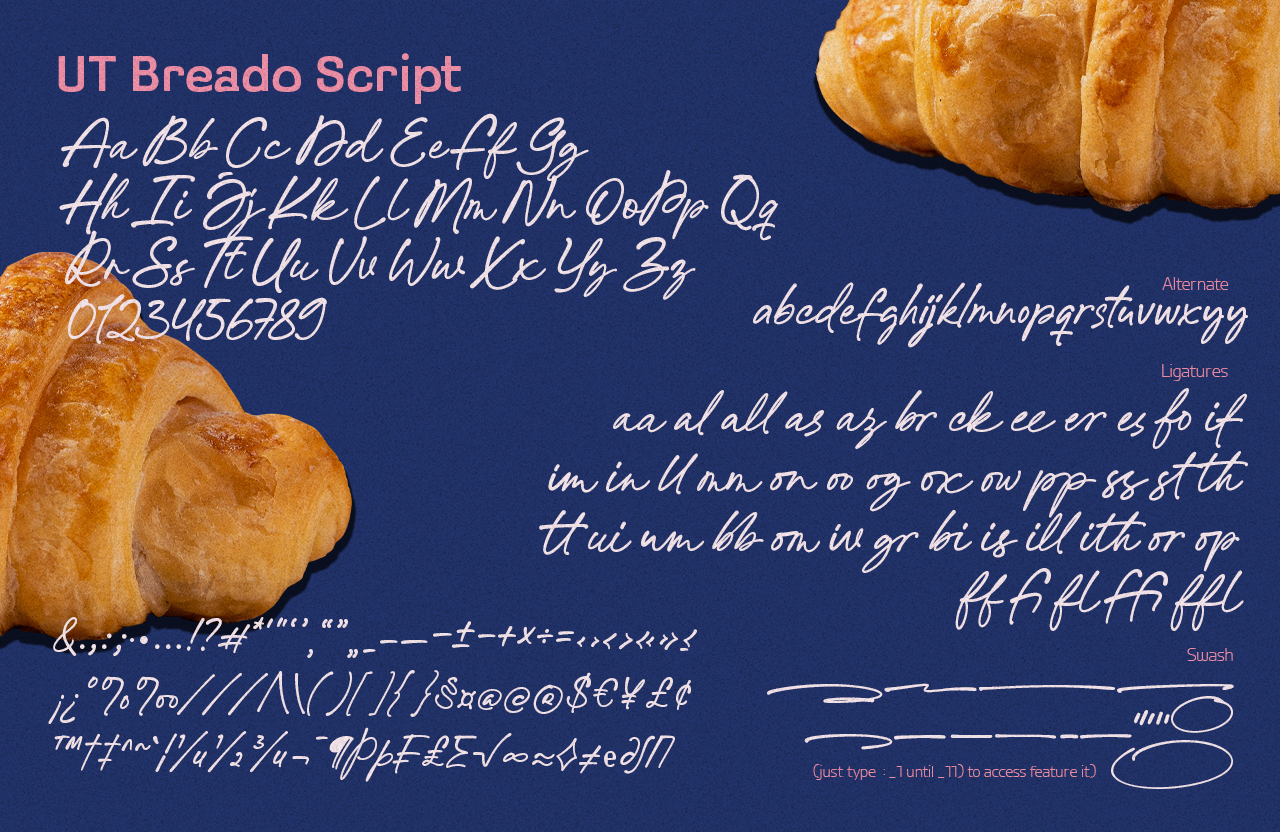 UT Breado Script
Aa Bb Cc Dd Ee Ff Gg
Hh Ii Jj Kk Ll Mm Nn Oo Pp Qq
Rr Ss Tt Uu Vv Ww Xx Yy Zz
0123456789
Alternate
abcdefghijklmnopqrstuvwxyy
Ligatures
aa al all as az br ck ee er es fo if
im in ll mm on oo og ox ow pp ss st th
tt ui um bb om iv gr bi is ill ith or op
ff fi fl ffi ffl
&.,:;·•...!?#*'"‘’‚“”„_-–—±−+×÷=‹›<>«»≤
¡¿°%‰///\|\()[]{}§¤@©®$€¥£¢
™†‡^~`|¼½¾¬¯¶Þþ₣₤∑√∞≈◊≠e∂∫∏
Swash
(just type : _1 until _11) to access feature it)